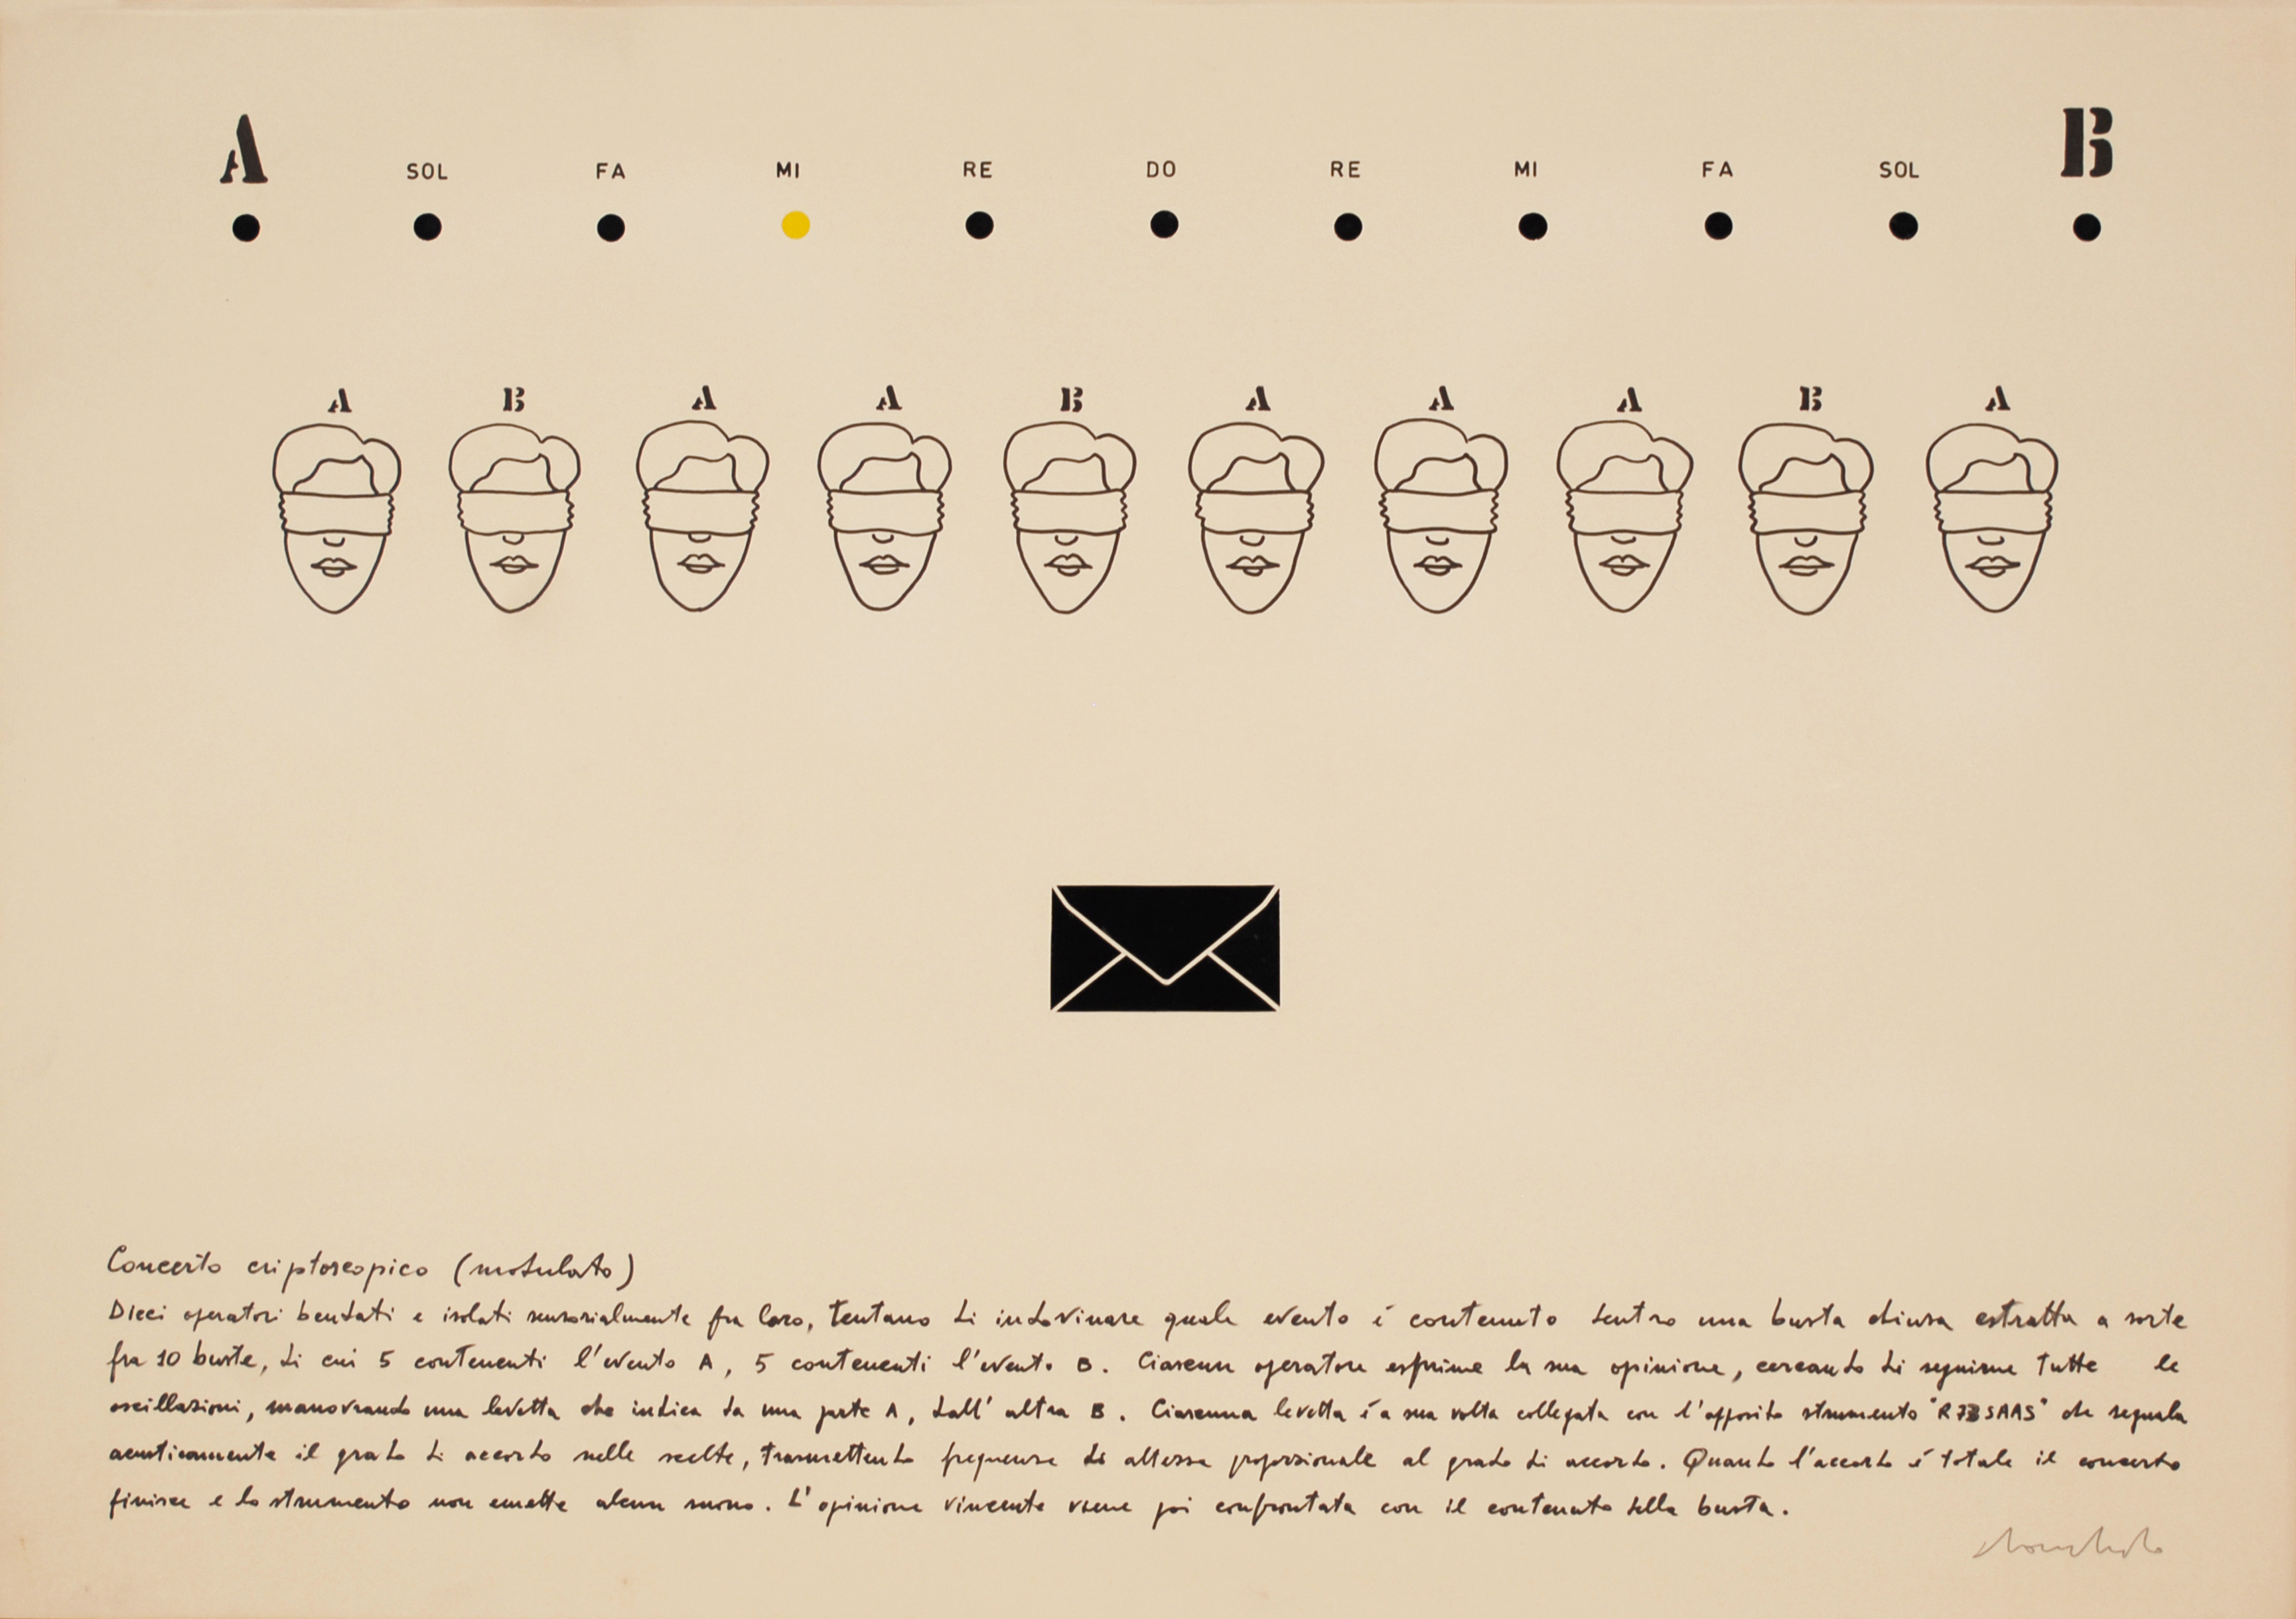 A SOL FA MI RE DO RE MI FA SOL B
A B A A B A A A B A
Concerto criptoscopico (modulato)
Dieci operatori bendati e isolati sensorialmente fra loro, tentano di indovinare quale evento é contenuto dentro una busta chiusa estratta a sorte
fra 10 buste, di cui 5 contenenti l'evento A, 5 contenenti l'evento B. Ciascun operatore esprime la sua opinione, cercando di seguirne tutte le
oscillazioni, manovrando una levetta che indica da una parte A, dall'altra B. Ciascuna levetta é a sua volta collegata con l'apposito strumento "R73SAAS" che segnala
acusticamente il grado di accordo nelle scelte, trasmettendo frequenze di altezza proporzionale al grado di accordo. Quando l'accordo é totale il concerto
finisce e lo strumento non emette alcun suono. L'opinione vincente viene poi confrontata con il contenuto della busta.